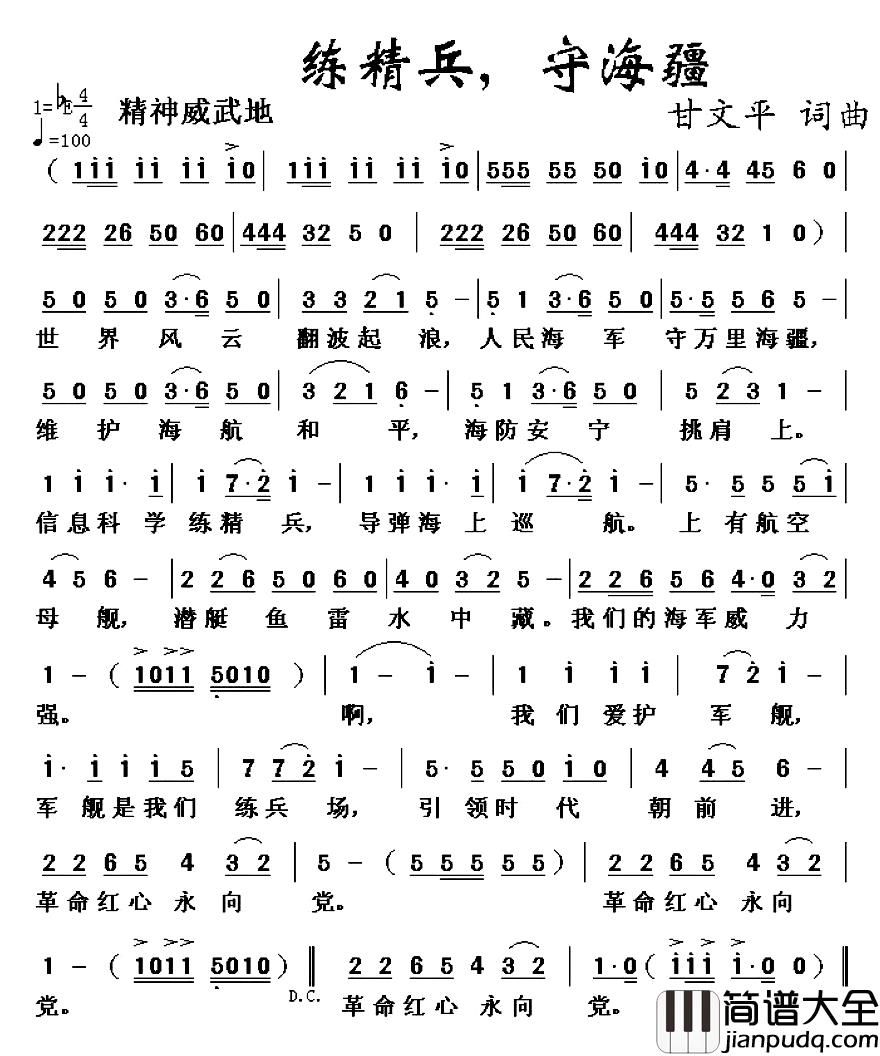 练精兵，守海疆
1=♭E 4/4 精神威武地 甘文平 词曲
♩=100
（1 i i i i i i i 0 | 1 i i i i i i i 0 | 555 55 50 i0 | 4·4 45 6 0 |
222 26 50 60 | 444 32 5 0 | 222 26 50 60 | 444 32 1 0 ）|
5 0 5 0 3·6 5 0 | 3 3 2 1 5 − | 5 1 3·6 5 0 | 5·5 5 6 5 − |
世 界 风 云 翻波起 浪，人民海 军 守万里海疆，
5 0 5 0 3·6 5 0 | 3 2 1 6 − | 5 1 3·6 5 0 | 5 2 3 1 − |
维 护 海 航 和 平，海防安 宁 挑肩 上。
1 i i· i | i 7·2 i − | 1 i i· i | i 7·2 i − | 5· 5 5 5 i |
信息科 学 练精 兵，导弹海 上 巡 航。上 有航空
4 5 6 − | 2 2 6 5 0 6 0 | 4 0 3 2 5 − | 2 2 6 5 6 4·0 3 2 |
母 舰，潜艇 鱼 雷 水 中 藏。我们的海军威 力
1 −（1011 5010）| 1 − i − | 1 i i i | 7 2 i − |
强。 啊， 我 们 爱护 军 舰，
i· i i i 5 | 7 7 2 i − | 5· 5 5 0 i 0 | 4 4 5 6 − |
军 舰是我们 练兵 场，引 领时 代 朝 前 进，
2 2 6 5 4 3 2 | 5 −（5 5 5 5 5）| 2 2 6 5 4 3 2 |
革命红心 永 向 党。 革命红心 永 向
1 −（1011 5010）‖ 2 2 6 5 4 3 2 | 1·0（i i i i·0）‖
党。 D.C. 革命红心 永向 党。
简谱大全
jianpudq.com